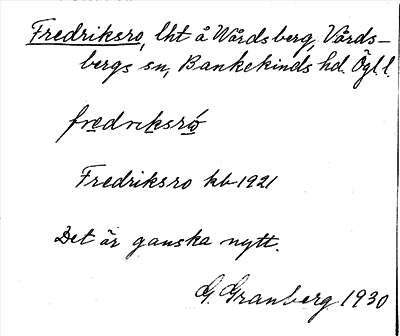 Fredriksro, lht å Wårdsberg, Vårds-
bergs sn, Bankekinds hd. Ögl.l.
fredriksró
Fredriksro kb 1921
Det är ganska nytt.
G. Granberg 1930